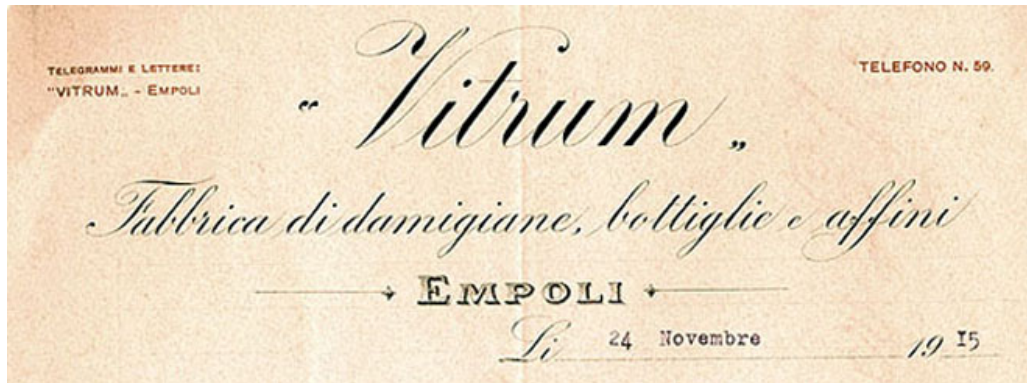 TELEGRAMMI E LETTERE:
"VITRUM„ - EMPOLI
TELEFONO N. 59.
“ Vitrum „
Fabbrica di damigiane, bottiglie e affini
EMPOLI
Li 24 Novembre 19 I5